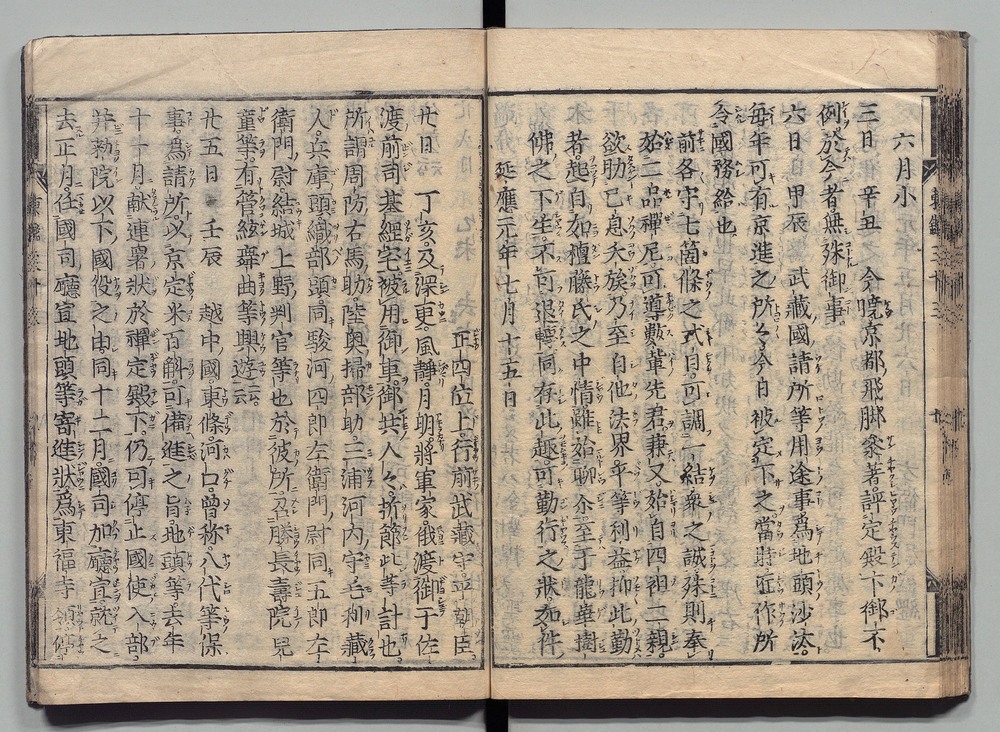 六月小
三日 辛丑 今曉京都飛脚參著評定殿下御不
例於今者無殊御事
六日 甲辰 武藏國請所等用途事爲地頭沙汰
毎年可有京進之所々今日被定下之當時匠作所
令國務給也
前各守七箇條之式目可調一結衆之誠殊則奉
始二品禪尼可導數輩先君兼又始自四祖二親
欲助己身夭族乃至自他法界平等利益抑此勤
者起自如檀藤氏之中情雖始聊尒至于龍華樹
佛之下生不可退轉同存此趣可勤行之狀如件
延應元年七月十五日
正四位上行前武藏守平朝臣
廿日 丁亥 及深更風靜月明將軍家俄渡御于佐
渡前司基經宅被用御車御共人々折節此等計也
所謂周防右馬助陸奥掃部助三浦河内守毛利藏
人兵庫頭織部頭同駿河四郎左衛門尉同五郎左
衛門尉結城上野判官等也於彼所召勝長壽院兒
童等有管絃舞曲等興遊云云
廿五日 壬辰 越中國東條河口曾祢八代等保
事爲請所以京定米百斛可備進之旨地頭等去年
十一月献連署狀於禪定殿下仍可停止國使入部
并勅院以下國役之由同十二月國司加廳宣就之
去正月任國司廳宣地頭等寄進狀爲東福寺領停